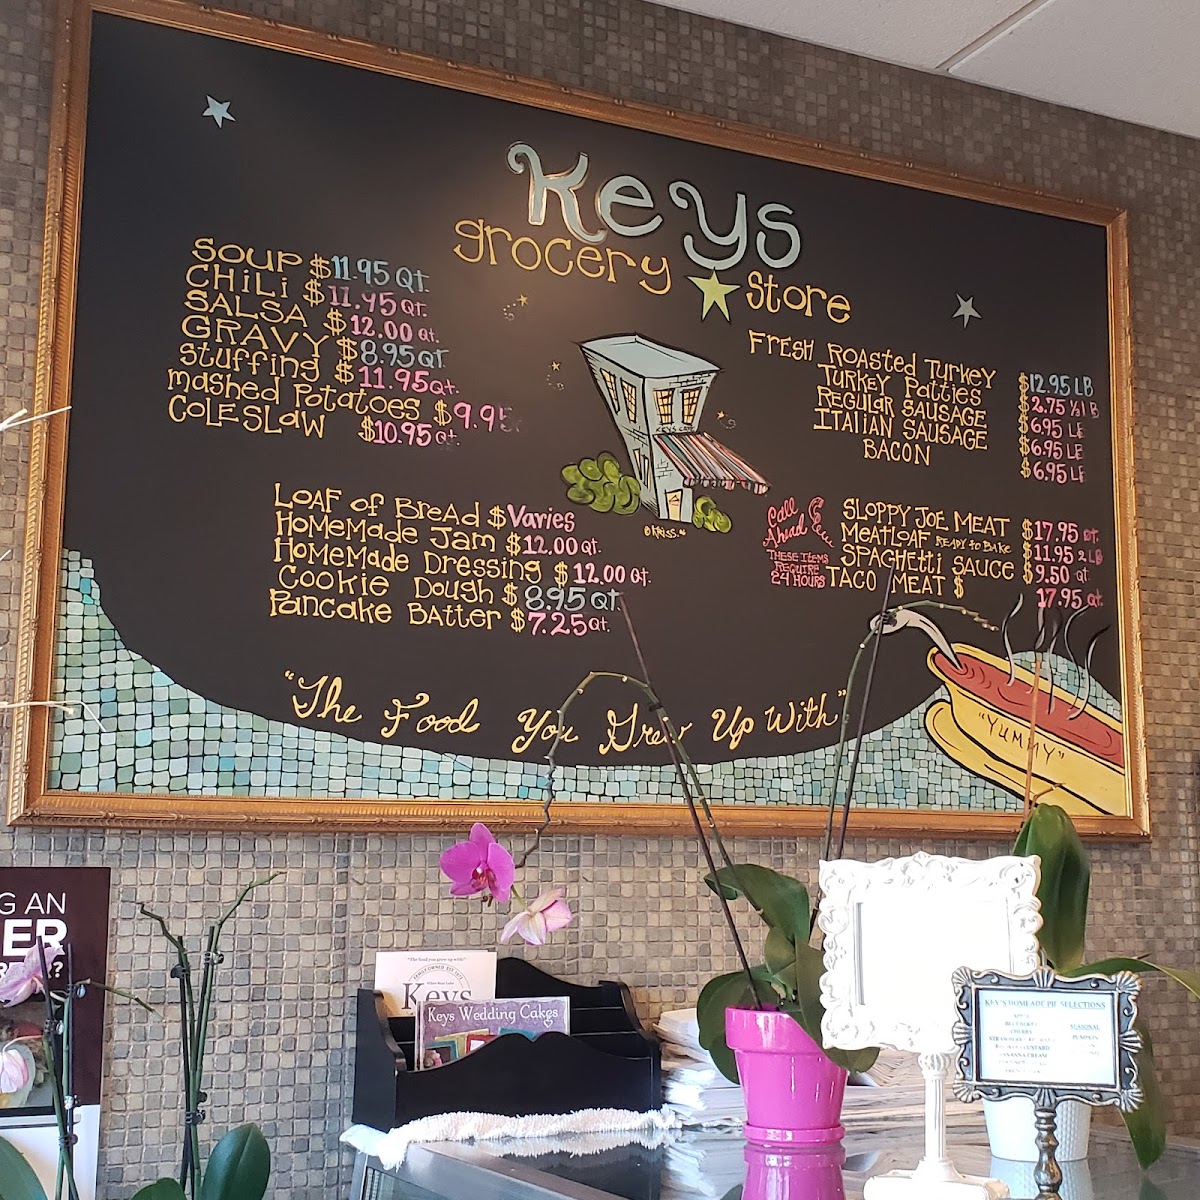 Keys
grocery Store
SOUP $11.95 Qt.
CHiLi $11.95 Qt.
SALSA $12.00 Qt.
GRAVY $8.95 QT
Stuffing $11.95 Qt.
mashed Potatoes $9.95
COLESLAW $10.95 Qt.
LOAF of BreAd $Varies
HOMEMADE JAM $12.00 Qt.
HOMEMADE Dressing $12.00 Qt.
COOKIE DOUGH $8.95 QT.
PANCAKE BATTER $7.25 Qt.
FRESH ROASTED TURKEY $12.95 LB
TURKEY PATTIES $2.75 ½ LB
REGULAR SAUSAGE $6.95 LB
ITALIAN SAUSAGE $6.95 LB
BACON $6.95 LB
KEYS CAFE
Call
Ahead
THESE ITEMS
REQUIRE
24 HOURS
SLOPPY JOE MEAT $17.95 QT.
MEATLOAF READY TO BAKE $11.95 2 LB
SPAGHETTI SAUCE $9.50 Qt
TACO MEAT $17.95 Qt.
"The Food You Grew Up With"
"YUMMY"
G AN
ER
?
"The food you grew up with!"
FAMILY OWNED
Keys
Keys Wedding Cakes
KEY'S HOMEADE PIE SELECTIONS
SEASONAL
PUMPKIN
BANANA CREAM